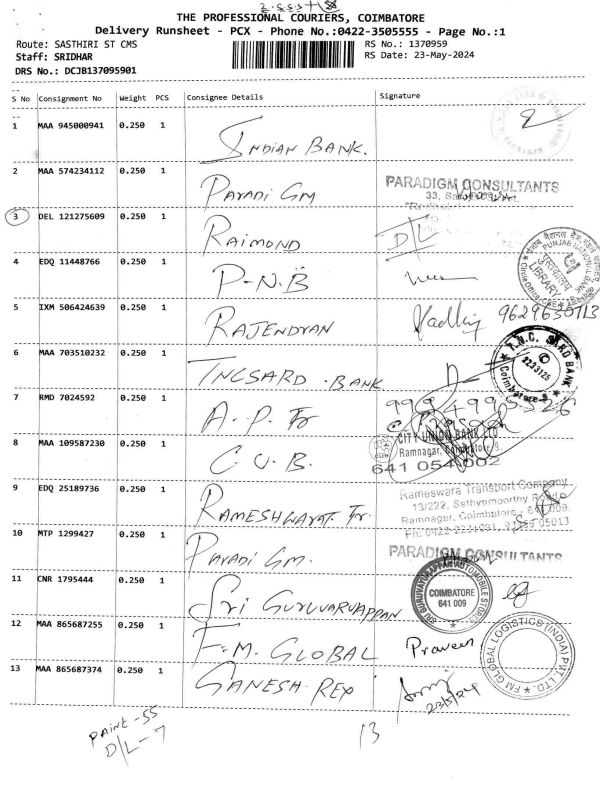 THE PROFESSIONAL COURIERS, COIMBATORE
Delivery Runsheet - PCX - Phone No.:0422-3505555 - Page No.:1
Route: SASTHIRI ST CMS
RS No.: 1370959
Staff: SRIDHAR
RS Date: 23-May-2024
DRS No.: DCJB137095901
S No Consignment No Weight PCS Consignee Details Signature
1 MAA 945000941 0.250 1 INDIAN BANK.
2 MAA 574234112 0.250 1 PARADI GM
PARADIGM CONSULTANTS
3 DEL 121275609 0.250 1 RAIMOND D/L
4 EDQ 11448766 0.250 1 P-N.B
PUNJAB NATIONAL BANK
LIBRARY
5 IXM 506424639 0.250 1 RAJENDRAN 9629630113
6 MAA 703510232 0.250 1 TNCSARD . BANK
T.N.C. SARD BANK
Coimbatore-9
7 RMD 7024592 0.250 1 A.P. Tr
8 MAA 109587230 0.250 1 C.U.B.
CITY UNION BANK LTD
Ramnagar, Coimbatore 9.
641 054 002
9 EDQ 25189736 0.250 1 RAMESHWARAT. Tr.
Rameswara Transport Company
13/222, Sathyamoorthy Road
Ramnagar, Coimbatore - 641 009.
10 MTP 1299427 0.250 1 PARADI GM.
PARADIGM CONSULTANTS
11 CNR 1795444 0.250 1 SRI GURUVARUAPPAN
SRI GURUVAYURAPPAN AUTOMOBILE STORES
COIMBATORE
641 009
12 MAA 865687255 0.250 1 F.M. GLOBAL Praveen
FM GLOBAL LOGISTICS (INDIA) PVT. LTD.
13 MAA 865687374 0.250 1 GANESH REX
23/5/24
PAINT - 55
D/L - 7
13